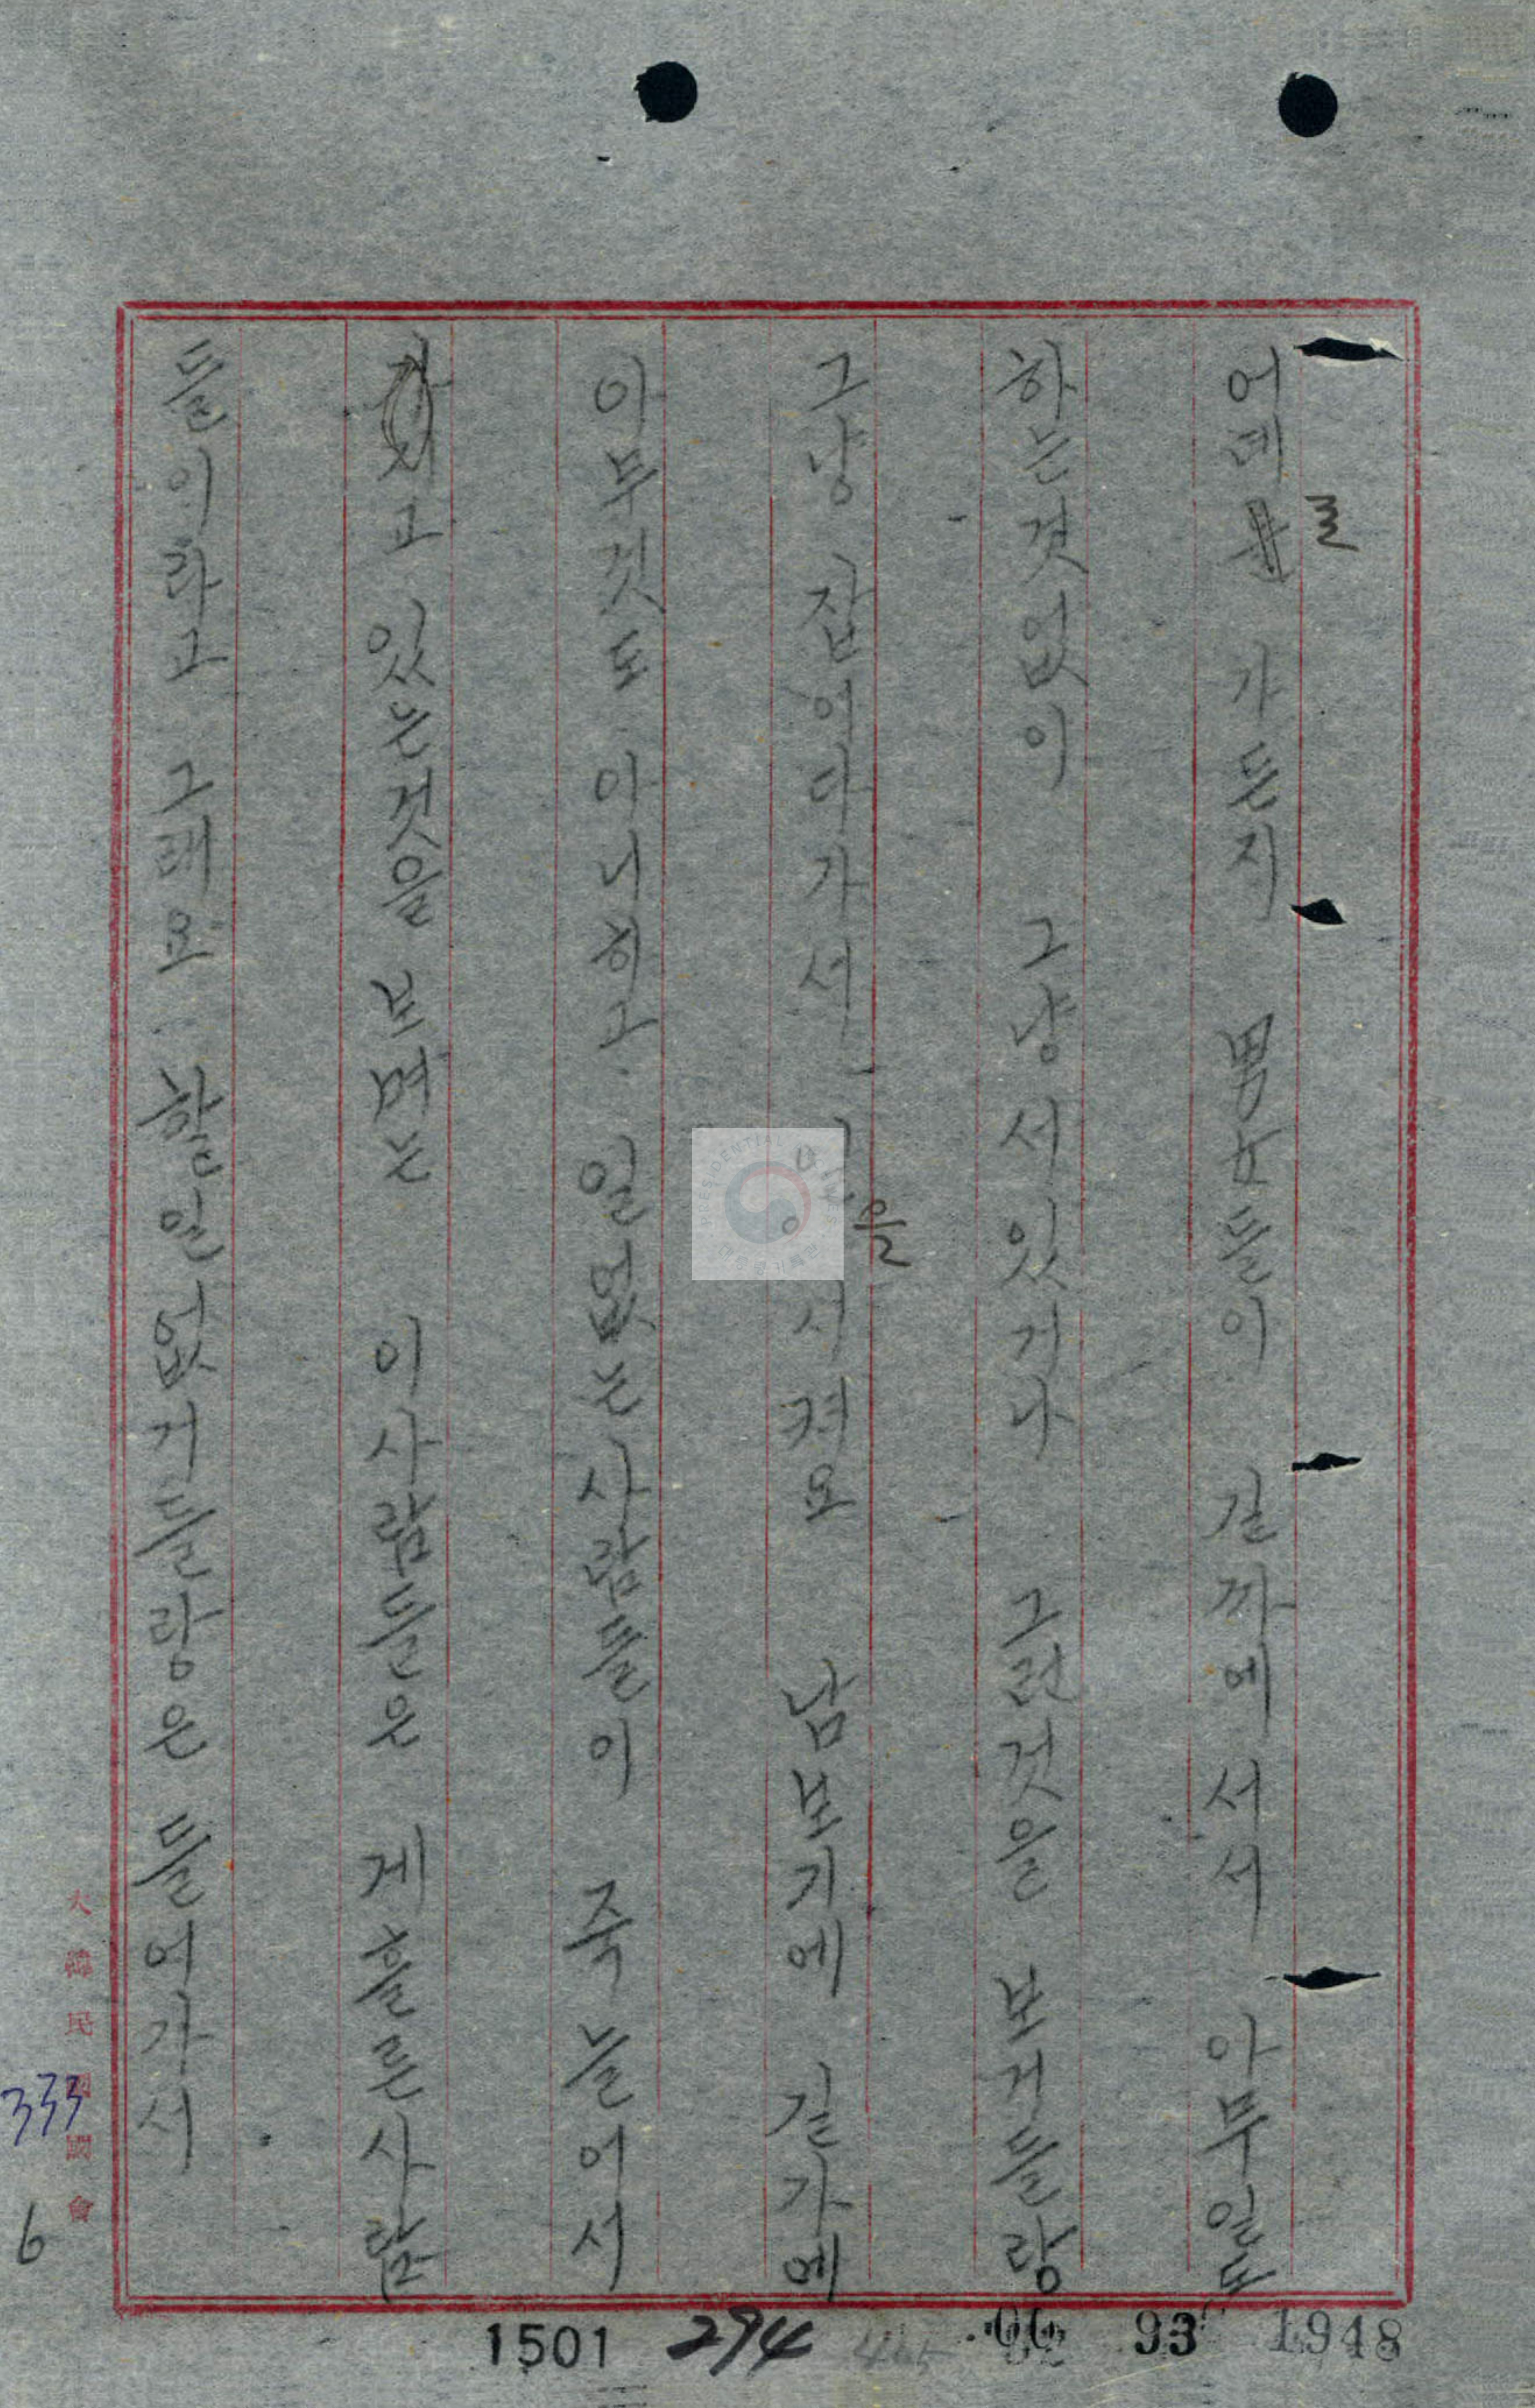 어데를 가든지 男女들이 길까에 서서 아무일도
하는것없이 그냥 서있거나 그런것을 보거들랑
그냥 잡어다가서 일을 시켜요 남보기에 길가에
아무것도 아니하고 일없는 사람들이 죽 늘어서
고 있는것을 보며는 이사람들은 게을른사람
들이라고 그래요 할일없거들랑은 들어가서
大韓民國國會
333
6
1501 294 93 1948